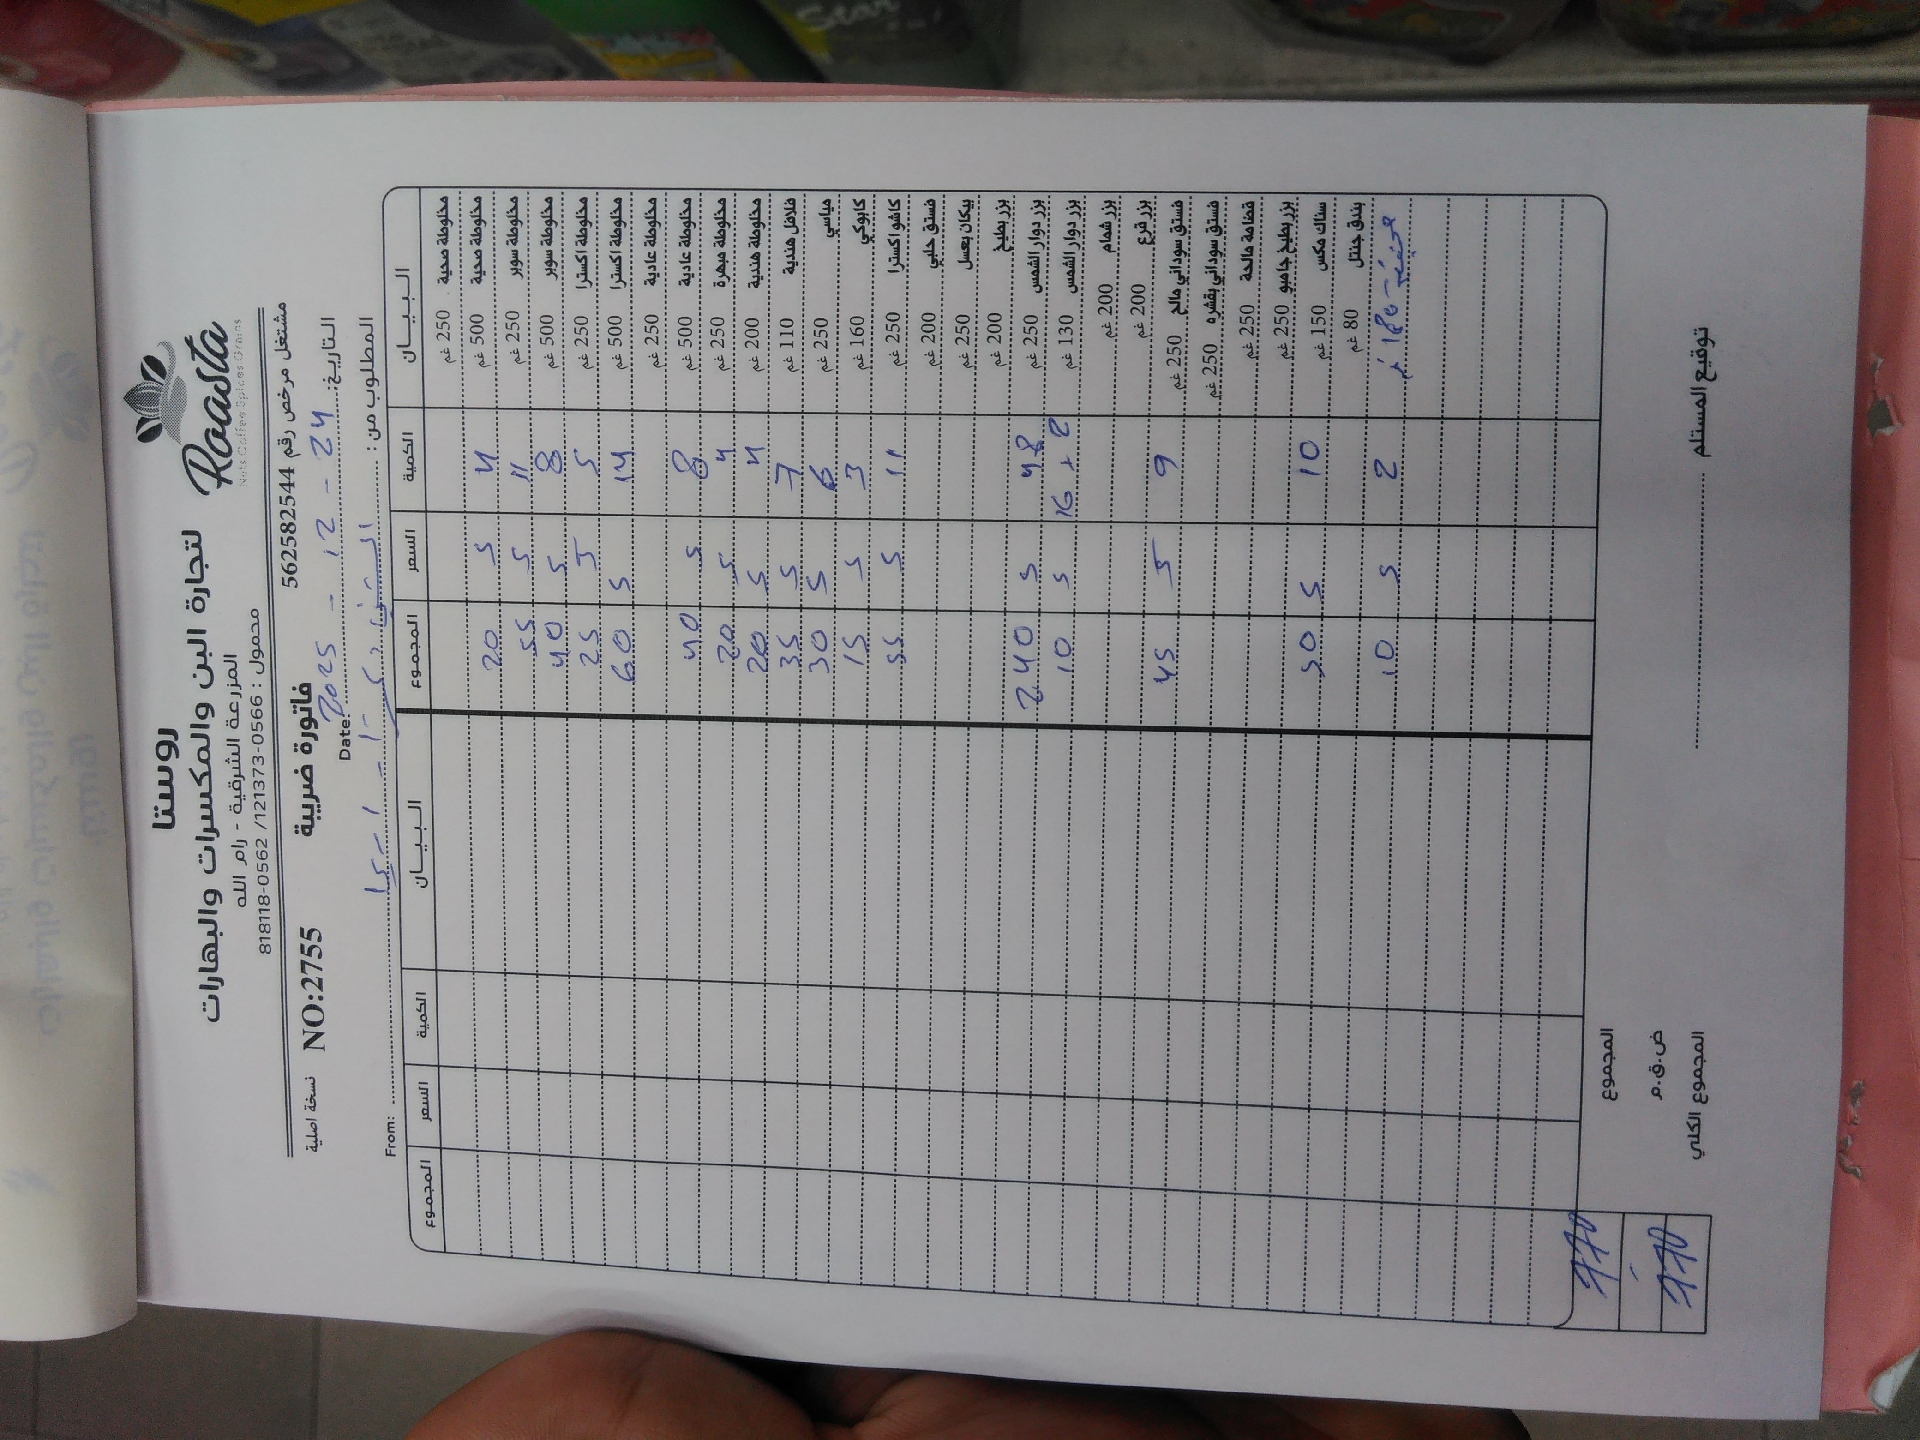 Roasta
Nuts Coffee Spices Grains
روستا
لتجارة البن والمكسرات والبهارات
المزرعة الشرقية - رام الله
محمول : 0566-121373/ 0562-818118
مشتغل مرخص رقم 562582544
فاتورة ضريبة
نسخة اصلية
NO:2755
التاريخ: 2025 - 12 - 24 Date:
المطلوب من: From:
البيــان الكمية السعر المجموع البيــان الكمية السعر المجموع
مخلوطة صحية 250 غم
مخلوطة صحية 500 غم 4 5 20
مخلوطة سوبر 250 غم 11 5 55
مخلوطة سوبر 500 غم 8 5 40
مخلوطة اكسترا 250 غم 5 5 25
مخلوطة اكسترا 500 غم 14 5 60
مخلوطة عادية 250 غم
مخلوطة عادية 500 غم 8 5 40
مخلوطة مبهرة 250 غم 4 5 20
مخلوطة هندية 200 غم 4 5 20
فلافل هندية 110 غم 7 5 35
مياسي 250 غم 6 5 30
كابوكي 160 غم 3 5 15
كاشو اكسترا 250 غم 11 5 55
فستق حلبي 200 غم
بيكان بعسل 250 غم
بزر بطيخ 200 غم
بزر دوار الشمس 250 غم 48 5 240
بزر دوار الشمس 130 غم 16 + 2 5 10
بزر شمام 200 غم
بزر قرع 200 غم
فستق سوداني مالح 250 غم 9 5 45
فستق سوداني بقشره 250 غم
قضامة مالحة 250 غم
بزر بطيخ جامبو 250 غم
سناك مكس 150 غم 10 5 50
بندق جنتل 80 غم
2 5 10
المجموع
ض.ق.م
المجموع الكلي
توقيع المستلم
Star